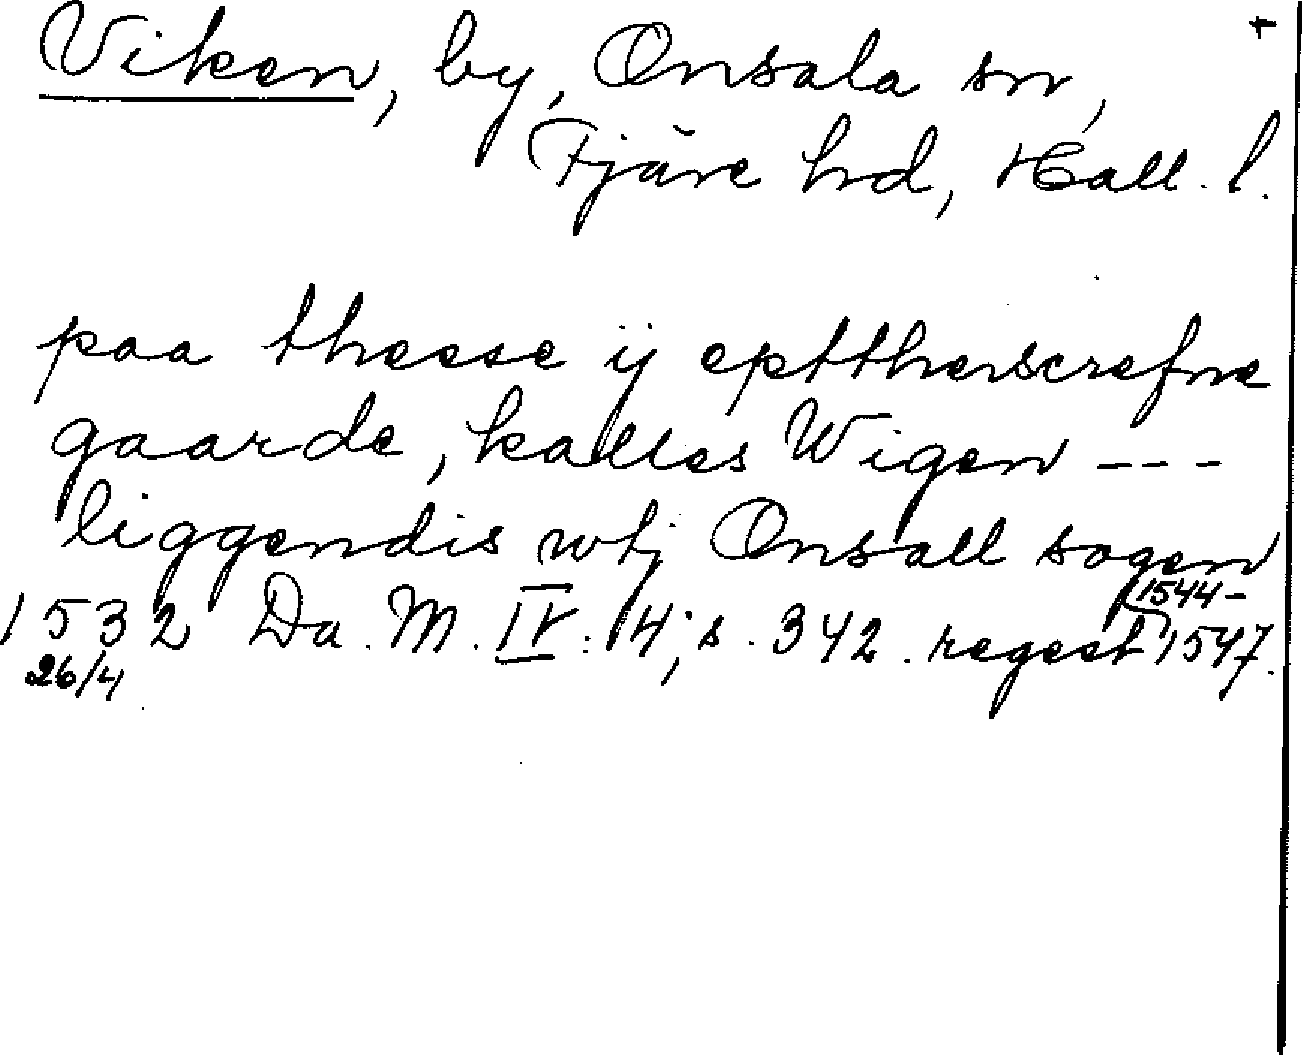 Viken, by, Onsala sn, +
Fjäre hrd, Hall. l.
paa theese ij epttherscrefne
gaarde, kalles Wigen ---
liggendis wtj Onsall sogen
1532 Da. M. IV: 4; s. 342. regest (1544-
26/4 1547.